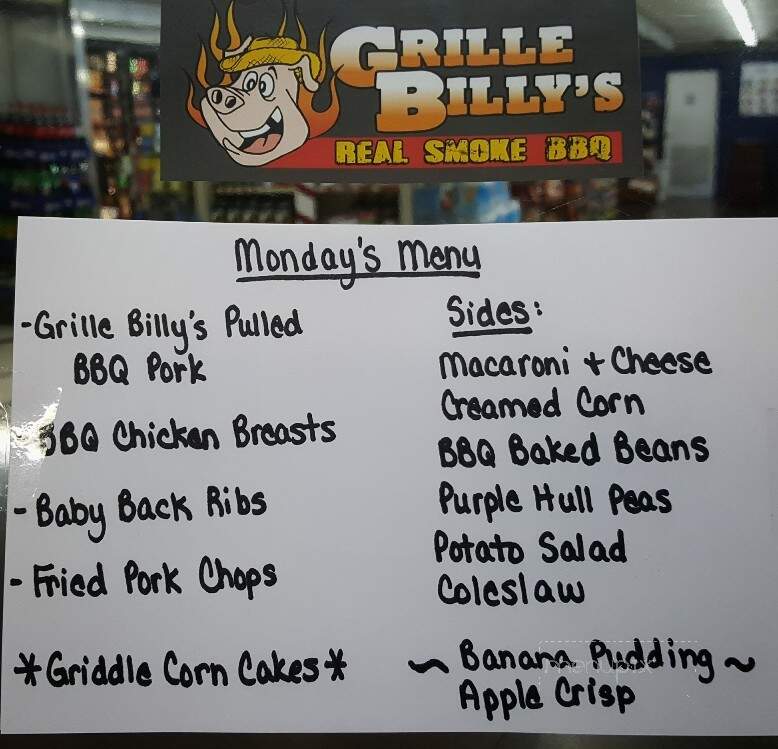 GRILLE
BILLY'S
REAL SMOKE BBQ
Monday's Menu
-Grille Billy's Pulled
BBQ Pork
BBQ Chicken Breasts
- Baby Back Ribs
- Fried Pork Chops
*Griddle Corn Cakes*
Sides:
Macaroni + Cheese
Creamed Corn
BBQ Baked Beans
Purple Hull Peas
Potato Salad
Coleslaw
~ Banana Pudding ~
Apple Crisp